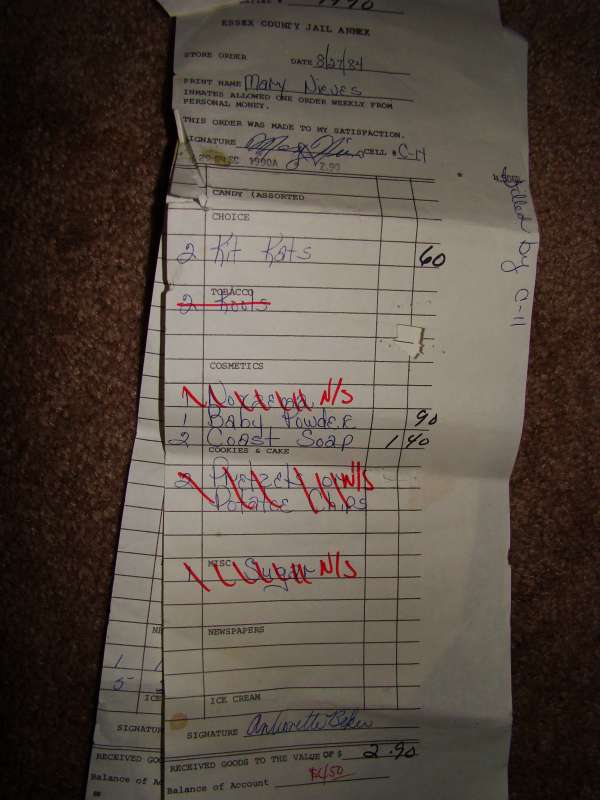 1990
ESSEX COUNTY JAIL ANNEX
STORE ORDER DATE 8/27/84
PRINT NAME Mary Nieves
INMATES ALLOWED ONE ORDER WEEKLY FROM
PERSONAL MONEY.
THIS ORDER WAS MADE TO MY SATISFACTION.
SIGNATURE Mary Nieves CELL # C-11
1990A 2.99
CANDY (ASSORTED
CHOICE
2 Kit Kats 60
TOBACCO
2 Kools
COSMETICS
Noxzema N/S
1 Baby Powder 90
2 Coast Soap 1 40
COOKIES & CAKE
2 Pretzels or N/S
Potatoe Chips
MISC Sugar N/S
NEWSPAPERS
ICE CREAM
SIGNATURE Antoinette Baker
RECEIVED GOODS TO THE VALUE OF $ 2.90
Balance of Account
filled by C-11
NE
1 1
5
ICE
SIGNATUR
RECEIVED GOO
Balance of A